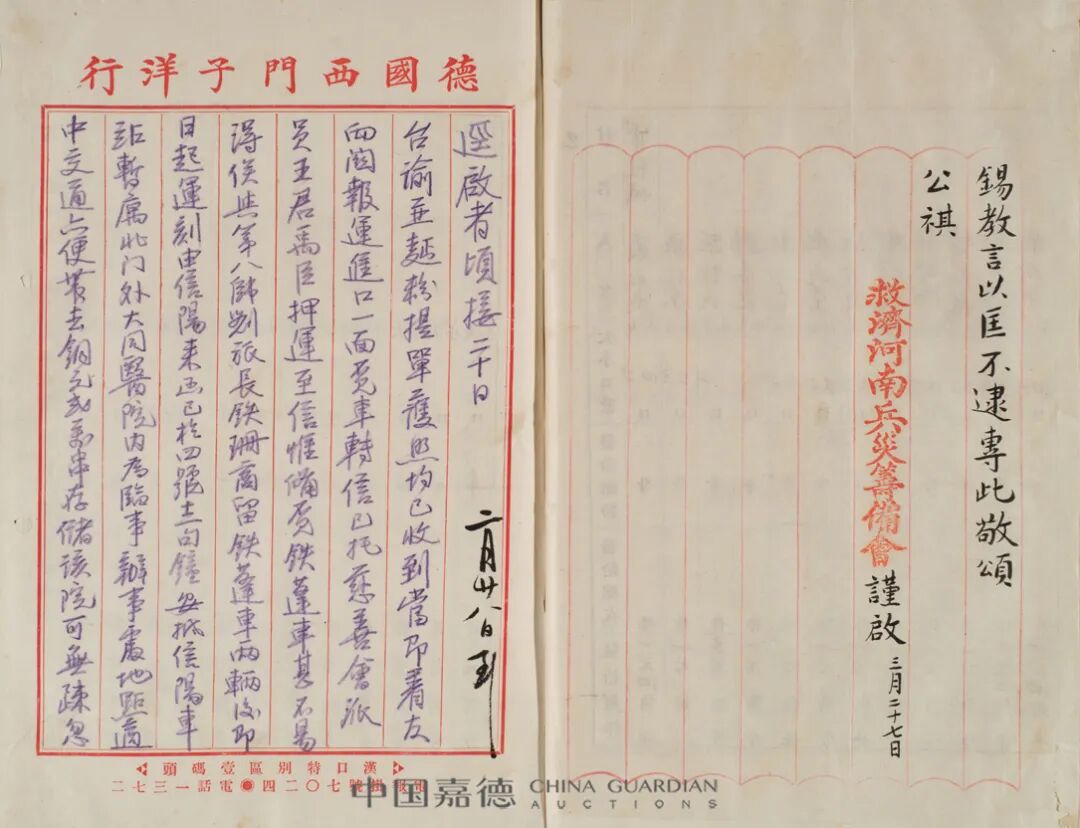 錫教言以匡不逮專此敬頌
公祺
救濟河南兵災籌備會謹啟 三月二十七日
德國西門子洋行
逕啟者頃接二十日
二月廿八日到
台諭並麵粉提單護照均已收到當即着友
向關報運進口一面覓車轉信已托慈善會派
員王君禹臣押運至信惟備貨鉄蓬車甚不易
得俟與第八師劉旅長鉄珊商留鉄蓬車兩輛後即
日起運刻由信陽來函已於四號十一句鐘安抵信陽車
站暫寓北门外大同醫院内為臨事辦事處地點適
中交通亦便帶去銅元貳萬串存儲該院可無疎忽
漢口特別區壹碼頭
掛號七〇二四 電話一三七二
中国嘉德 CHINA GUARDIAN
AUCTIONS